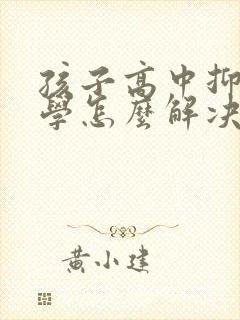 孩子高中抑
學怎麼解决
黄小建